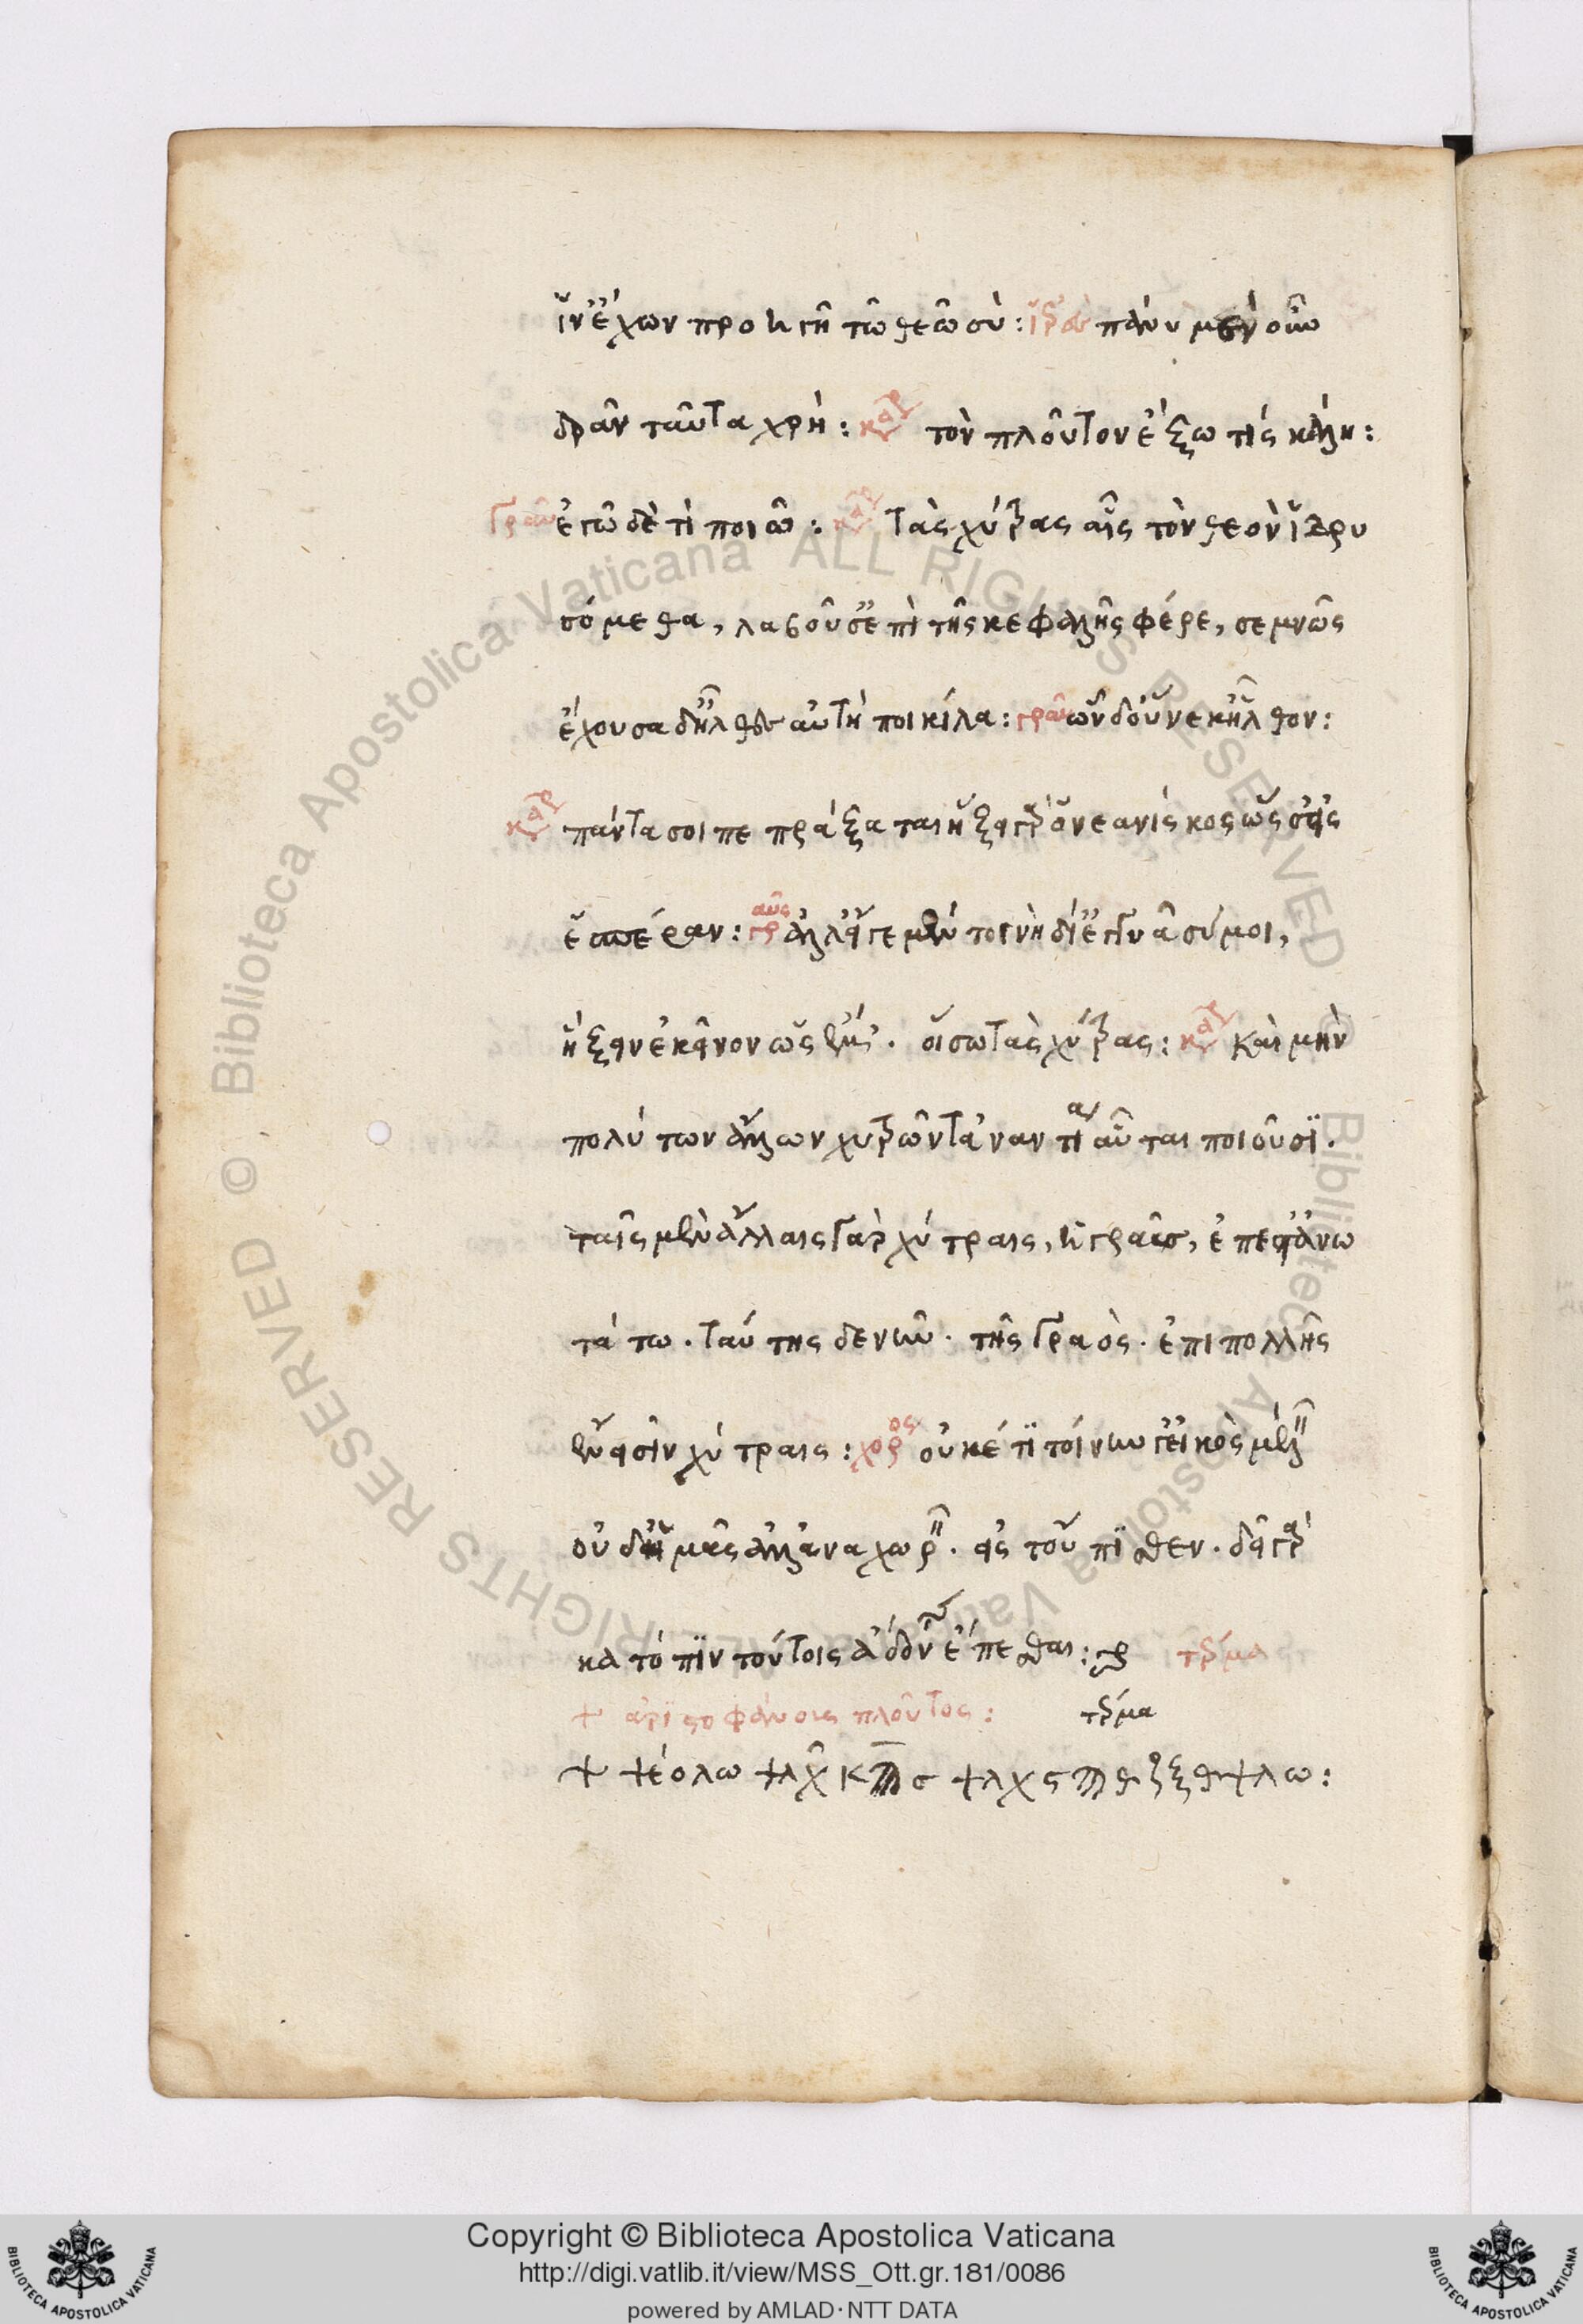 ἵν' ἔχων προηγῇ τῶ θεῶ σύ: ἱερεὺς πάνυ μὲν οὖν
δρᾶν ταῦτα χρή: καρ τὸν πλοῦτον ἔξω τίς κάλει:
γραῦς ἐγὼ δὲ τί ποιῶ: καρ τὰς χύτρας αἷς τὸν θεὸν ἱδρυ
σόμεθα, λαβοῦσ' ἐπὶ τῆς κεφαλῆς φέρε, σεμνῶς
ἔχουσα δ' ἦλθες αὐτὴ ποικίλα: γραῦς ὧν δ' οὕνεκ' ἦλθον:
καρ πάντα σοι πεπράξαται ἥξει γὰρ ὁ νεανίσκος ὡς σ' εἰς
ἑσπέραν: γραῦς ἀλλ' εἴ γε μέντοι νὴ δί' ἐγγυᾶ σύ μοι,
ἥξειν ἐκεῖνον ὡς ἐμέ. οἴσω τὰς χύτρας: καρ καὶ μὴν
πολὺ των ἄλλων χυτρῶν τἀναντία αὗται ποιοῦσι.
ταῖς μὲν ἄλλαις γὰρ χύτραις, ἡ γραῦς, ἔπεστ' ἀνω
τάτω. ταύτης δε νῦν. τῆς γραὸς. ἐπιπολλῆς
ἔνεισιν χύτραις: χορος οὐκέτι τοίνυν γ' εἰκὸς μέλλειν
οὐδ' ἡμᾶς ἀλλ' ἀναχωρεῖν. εἰς τοὔπισθεν. δεῖ γὰρ
κατόπιν τούτοις ᾄδοντ' ἕπεσθαι: τέρμα
+ ἀριστοφάνους πλοῦτος: τέρμα